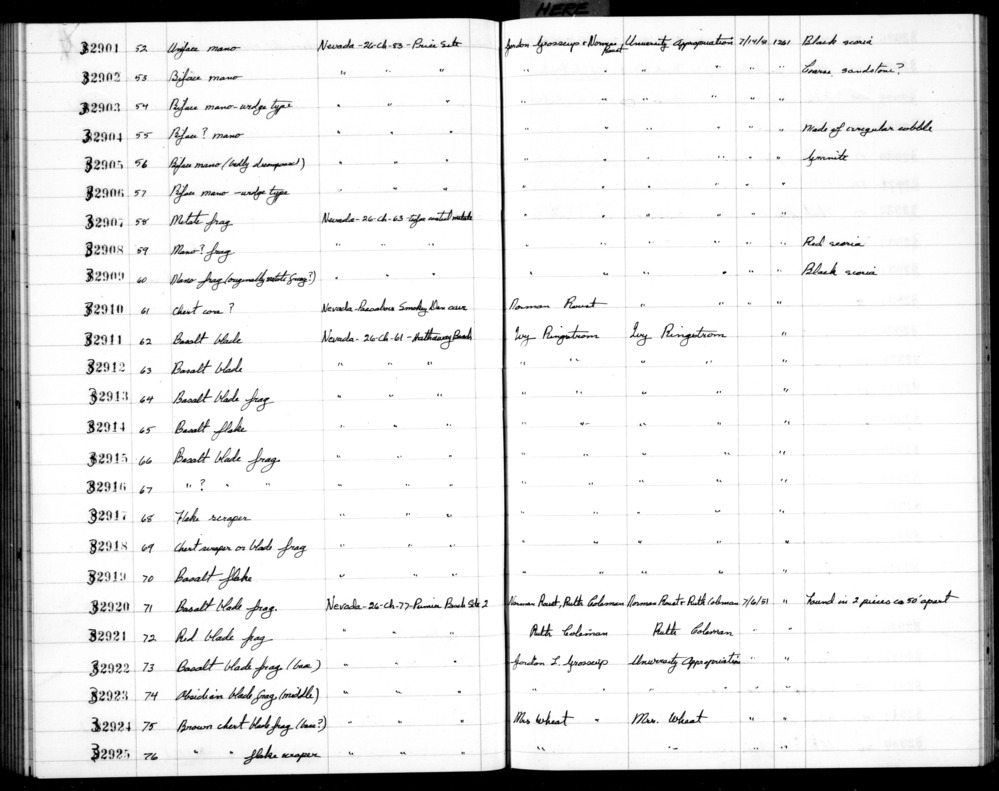 HERE
32901 52 Uniface mano Nevada-26-Ch-53-Price Site Gordon Grosscup & Norman Roust University Appropriation 7/14/51 1261 Black scoria
32902 53 Biface mano " " " " " " " " " Coarse sandstone?
32903 54 Biface mano-wedge type " " " " " " " " "
32904 55 Biface? mano " " " " " " " " " Made of irregular cobble
32905 56 Biface mano (badly decomposed) " " " " " " " " " Granite
32906 57 Biface mano-wedge type " " " " " " " " "
32907 58 Metate frag Nevada-26-Ch-63- metate " " " " " "
32908 59 Mano? frag " " " " " " " " " Red scoria
32909 60 Mano frag (originally metate frag?) " " " " " " " " " Black scoria
32910 61 Chert core? Nevada- Smokey Dan cave Norman Roust " " " "
32911 62 Basalt blade Nevada-26-Ch-61-Hathaway Beach Ivy Ringstrom Ivy Ringstrom "
32912 63 Basalt blade " " " " " " " "
32913 64 Basalt blade frag " " " " " " " "
32914 65 Basalt flake " " " " " " " "
32915 66 Basalt blade frag. " " " " " " " "
32916 67 " ? " " " " " " " " " "
32917 68 Flake scraper " " " " " " " "
32918 69 Chert scraper or blade frag " " " " " " " "
32919 70 Basalt flake " " " " " " " "
32920 71 Basalt blade frag. Nevada-26-Ch-77- Beach Site 2 Norman Roust, Ruth Coleman Norman Roust & Ruth Coleman 7/6/51 " Found in 2 pieces ca 50' apart
32921 72 Red blade frag " " " Ruth Coleman Ruth Coleman " "
32922 73 Basalt blade frag (base) " " " Gordon L. Grosscup University Appropriation " "
32923 74 Obsidian blade frag. (middle) " " " " " " " " "
32924 75 Brown chert blade frag (base?) " " " Mrs Wheat " Mrs. Wheat " "
32925 76 " " flake scraper " " " " " " "